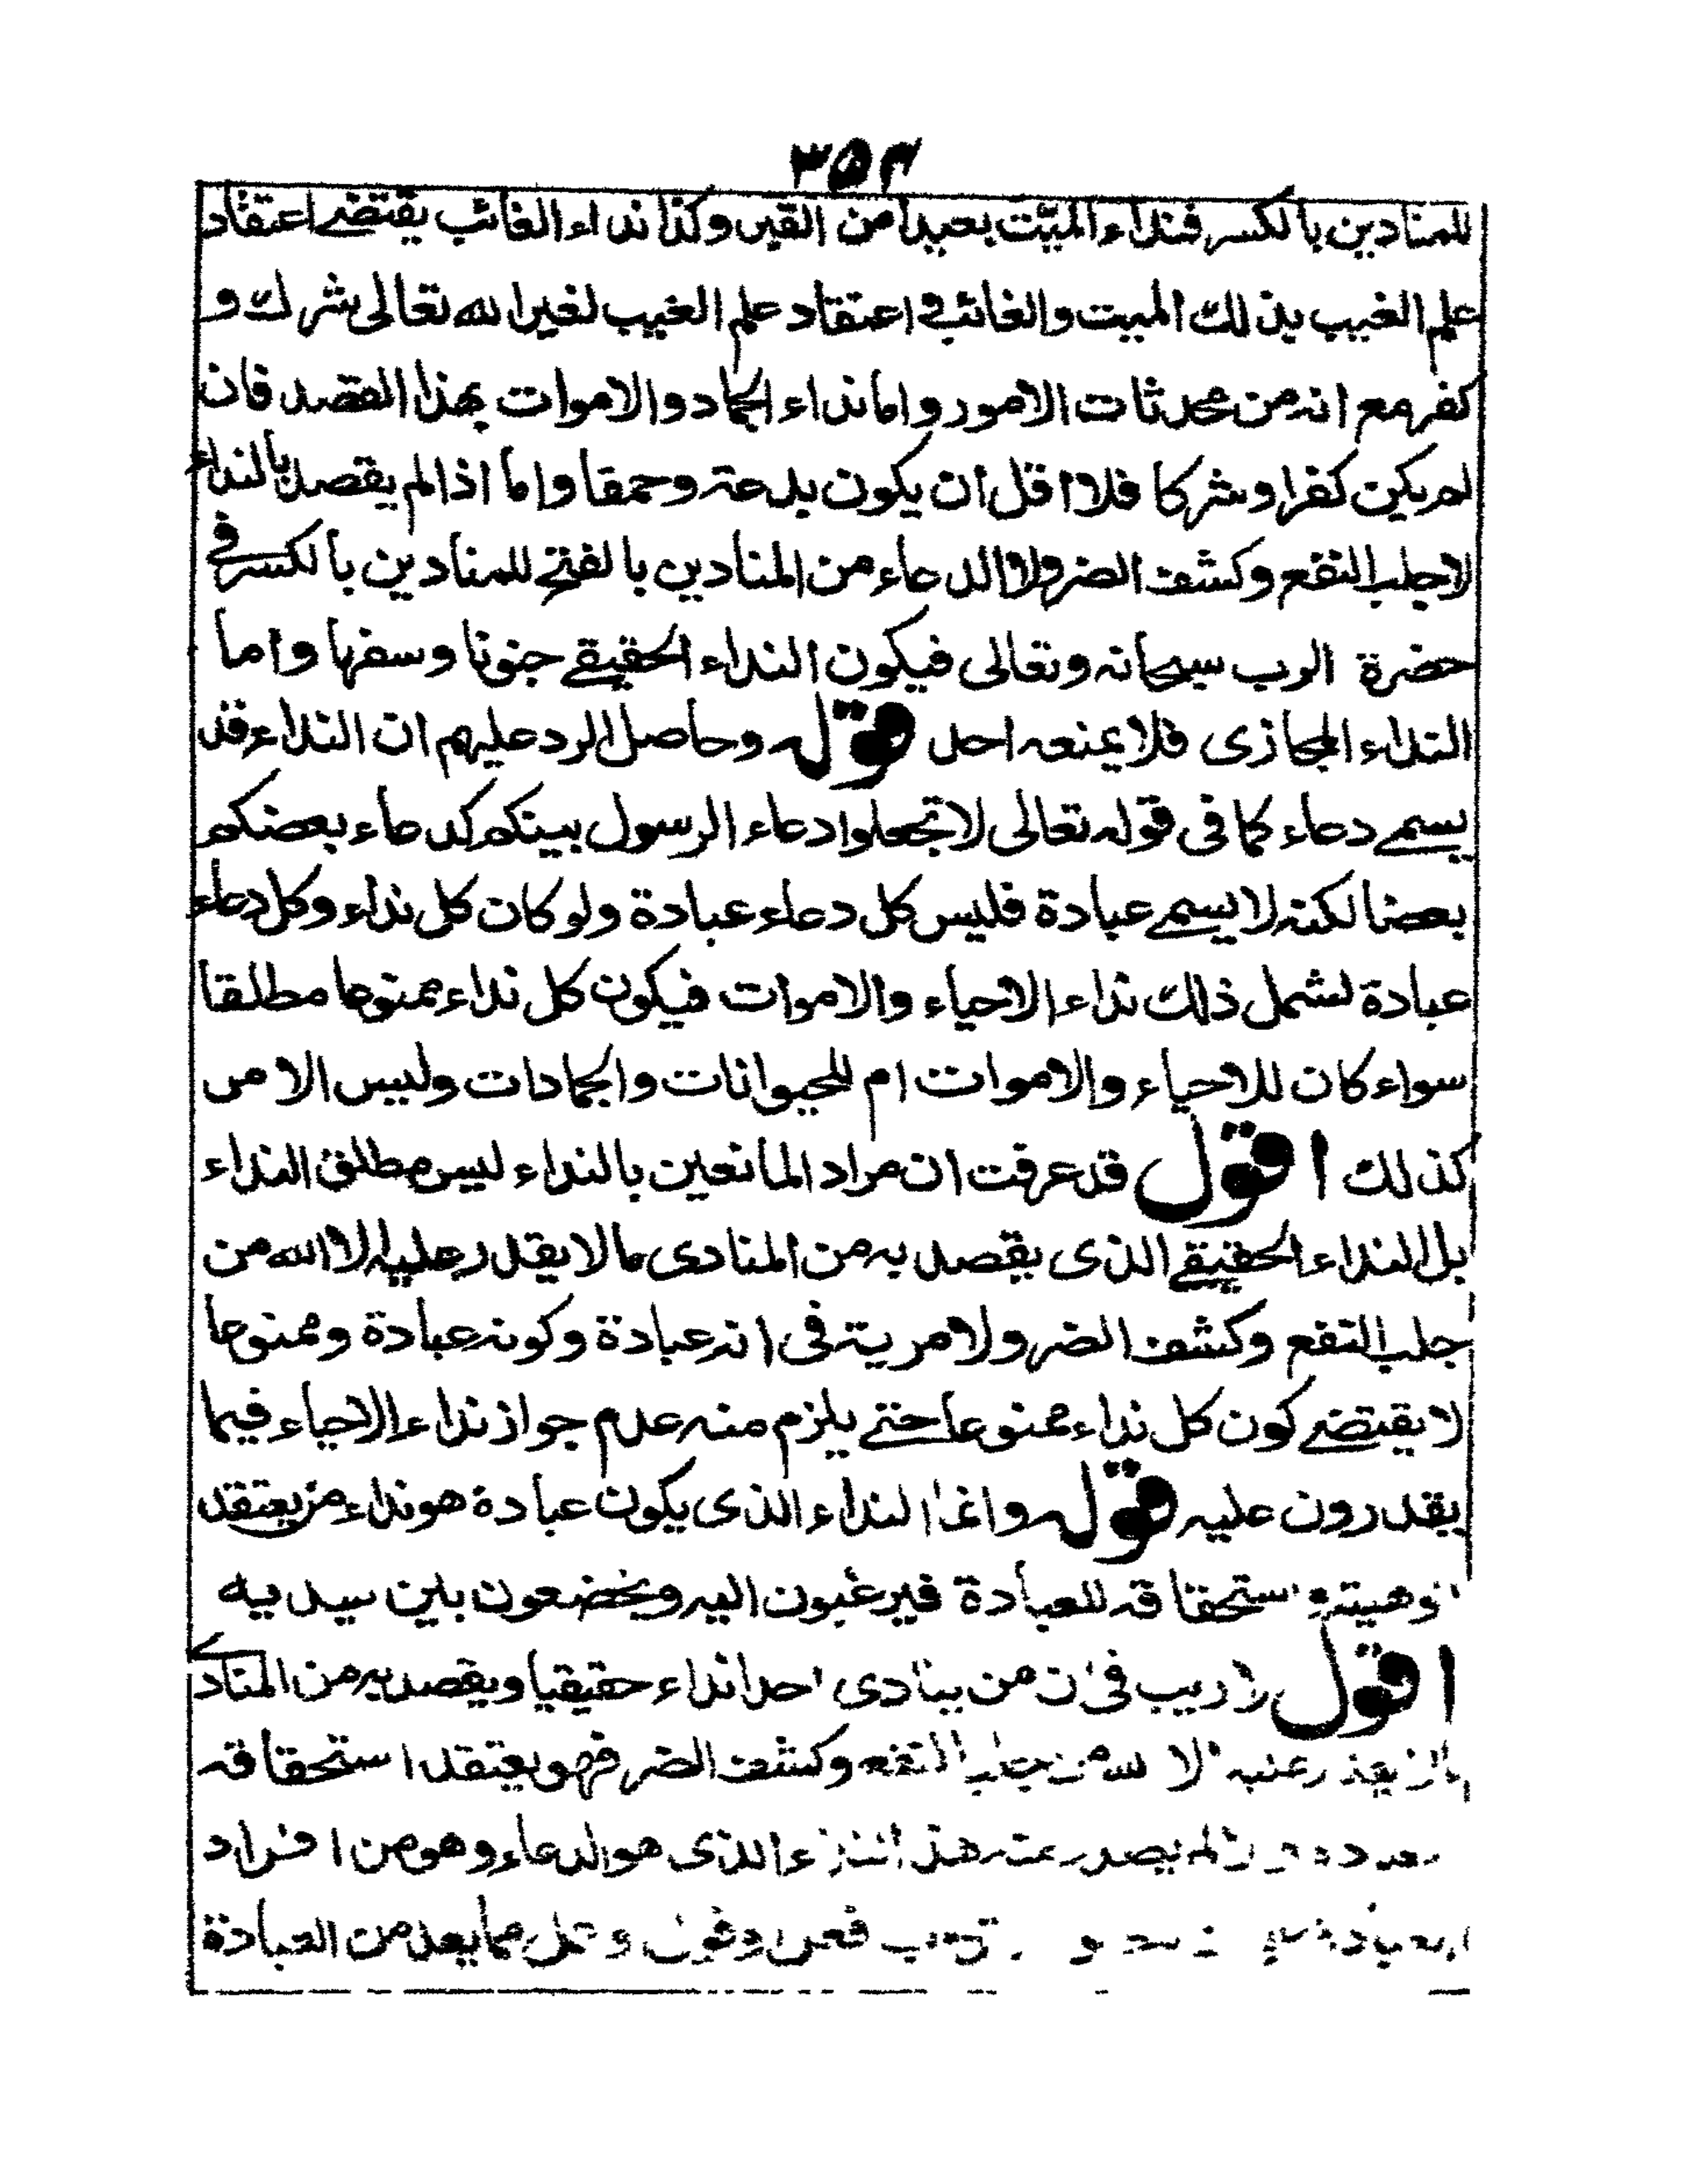 ٣٥٤
للمنادين بالكسر فنداء الميّت بعيدا من القبر وكذا نداء الغائب يقتضے اعتقاد
علم الغيب بذلك الميت والغائب فى اعتقاد علم الغيب لغير الله تعالى شرك و
كفر مع انه من محدثات الامور واما نداء الجماد والاموات بهذا القصد فان
لم يكن كفرا وشركا فلا اقل ان يكون بدعة وحمقا واما اذا لم يقصد بالنداء
لاجلب النفع وكشف الضر ولا الدعاء من المنادين بالفتح للمنادين بالكسر فے
حضرة الرب سبحانه وتعالى فيكون النداء الحقيقے جنونا وسفها واما
النداء المجازى فلا يمنعه احد قوله وحاصل الرد عليهم ان النداء قد
يسمے دعاء كما فى قوله تعالى لا تجعلوا دعاء الرسول بينكم كدعاء بعضكم
بعضا لكنه لا يسمے عبادة فليس كل دعاء عبادة ولو كان كل نداء وكل دعاء
عبادة لشمل ذلك نداء الاحياء والاموات فيكون كل نداء ممنوعا مطلقا
سواء كان للاحياء والاموات ام للحيوانات والجمادات وليس الامر
كذلك اقول قد عرفت ان مراد المانعين بالنداء ليس مطلق النداء
بل النداء الحقيقے الذى يقصد به من المنادى ما لا يقدر عليه الا الله من
جلب النفع وكشف الضر ولا مرية فى انه عبادة وكونه عبادة وممنوعا
لا يقتضے كون كل نداء ممنوعا حتے يلزم منه عدم جواز نداء الاحياء فيما
يقدرون عليه قوله وانما النداء الذى يكون عبادة هو نداء من يعتقد
الوهيته واستحقاقه للعبادة فيرغبون اليه ويخضعون بين يديه
اقول لا ريب فى ان من ينادى احدا نداء حقيقيا ويقصد به من المنادى
ما لا يقدر عليه الا الله من جلب النفع وكشف الضر فهو يعتقد استحقاقه
لم يصدر عنه هذا النداء الذى هو الدعاء وهو من افراد
العبادة فعل وقول وعمل مما يعد من العبادة